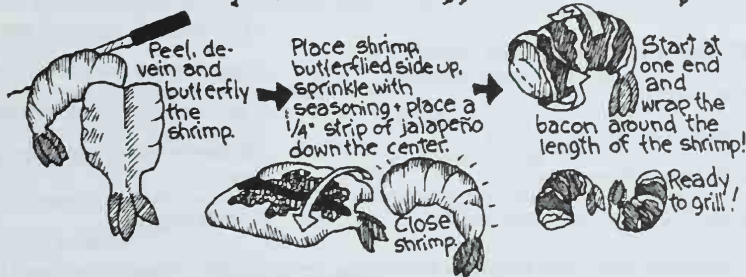 Peel, de-
vein and
butterfly
the
shrimp.
Place shrimp,
butterflied side up,
sprinkle with
seasoning + place a
1/4" strip of jalapeño
down the center.
Close
shrimp.
Start at
one end
and
wrap the
bacon around the
length of the shrimp!
Ready
to grill!